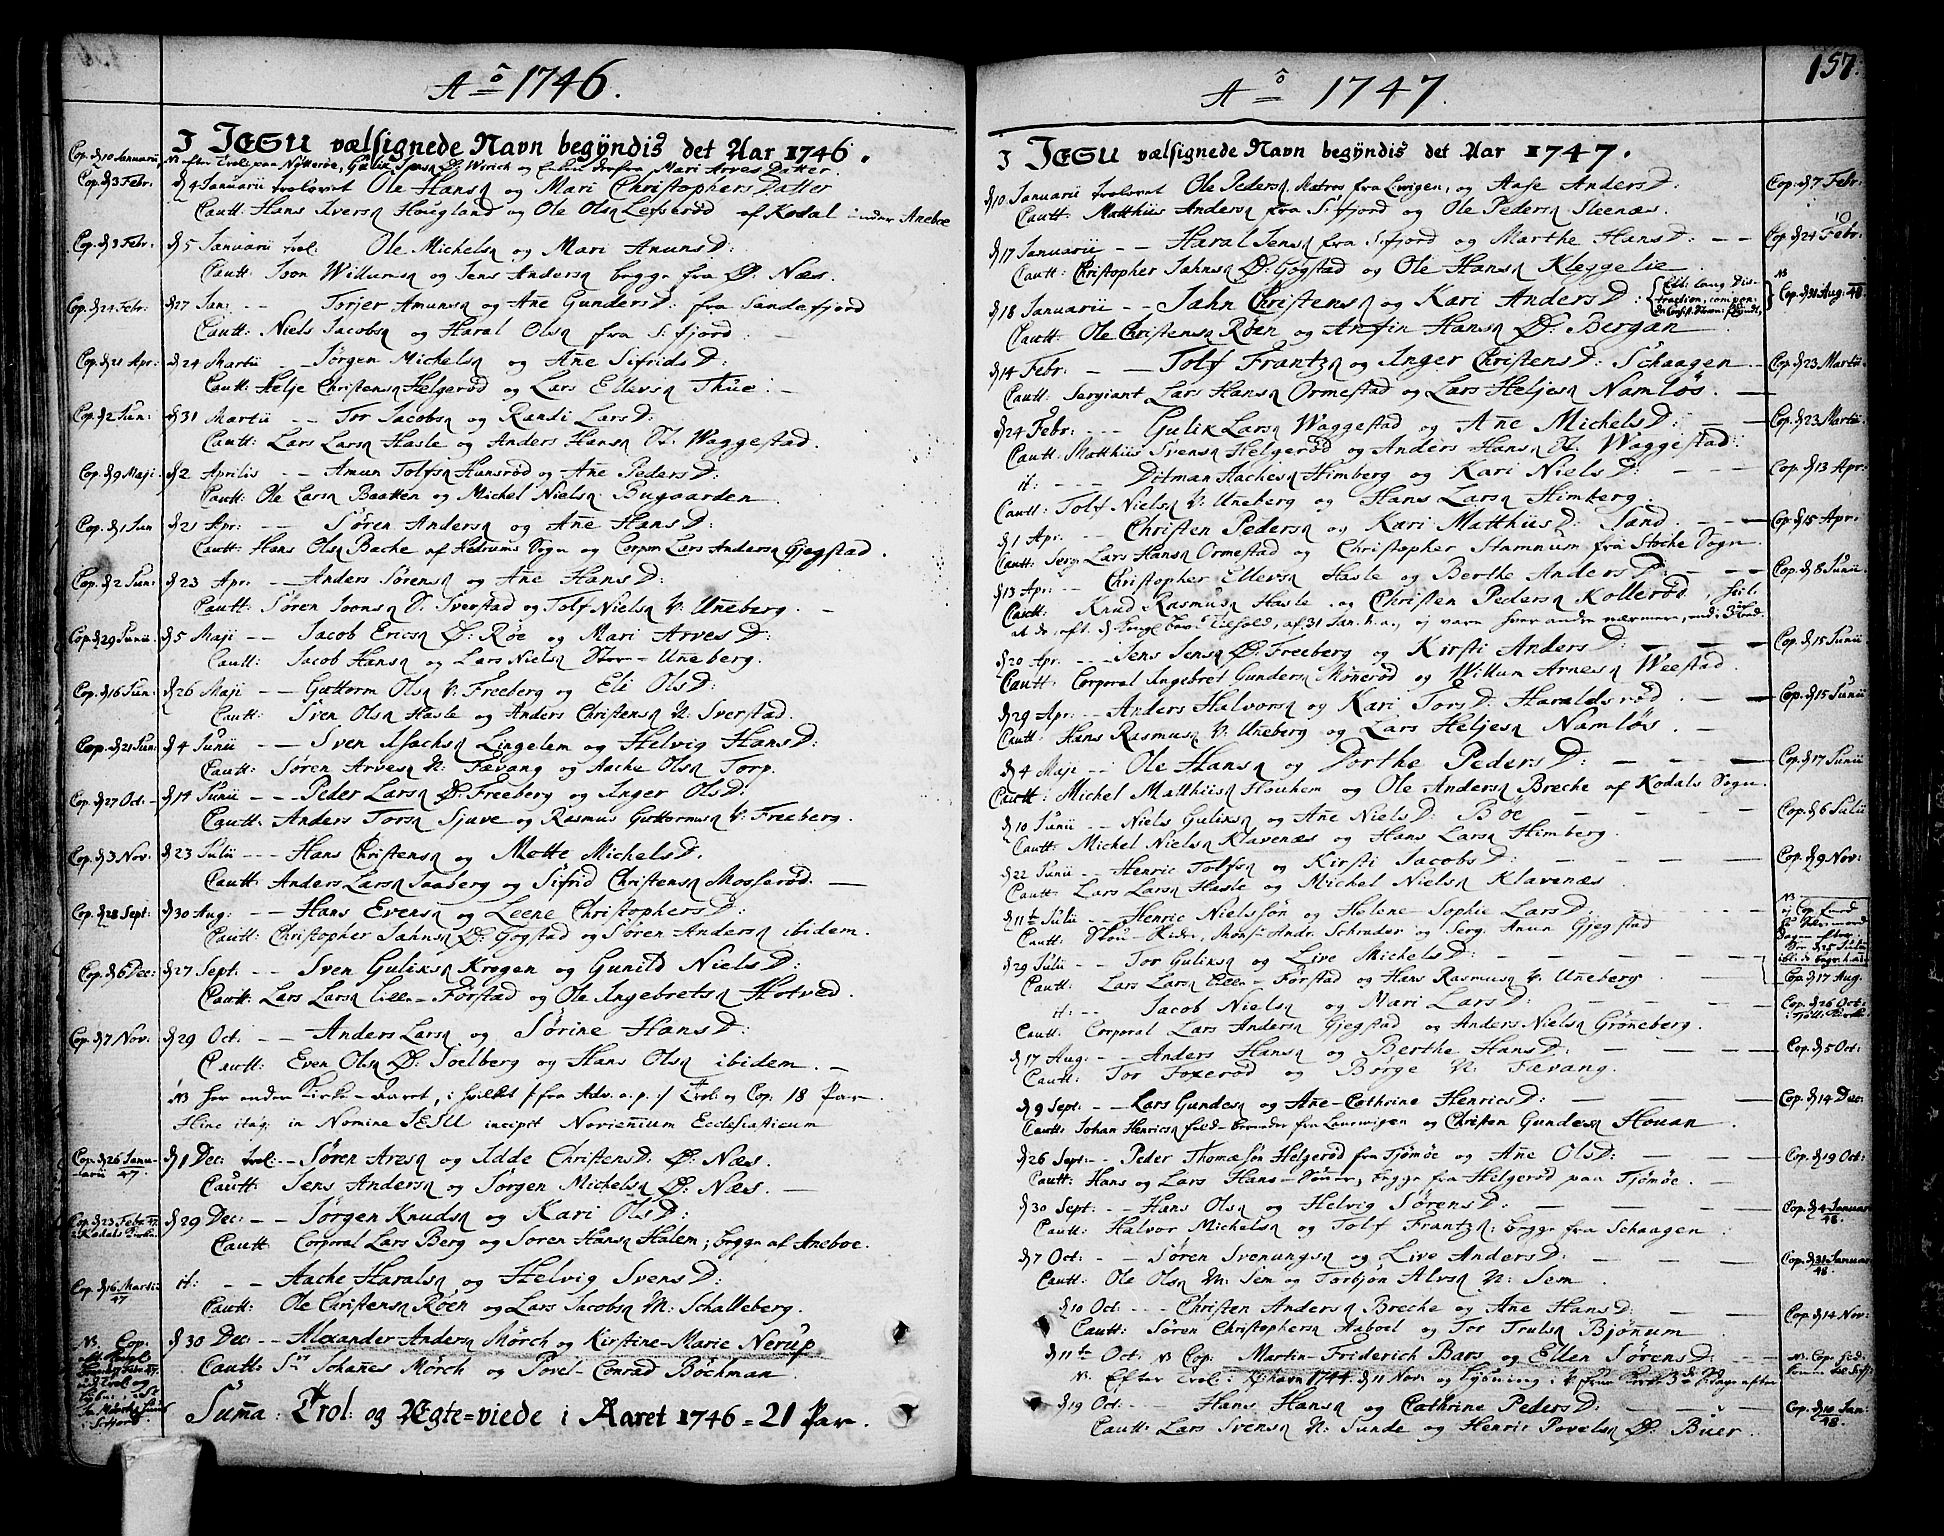 Aō 1746.
I JESU vælsignede Navn begÿndis det Aar 1746.
Cop. d 10 Januarii, NB efter Trol: paa Nøtterøe, Gulik
Mari Arves Datter.
Cop. d 3 Febr. d 4 Januarii trolovet Ole Hansn og Mari Christophers Datter
Cautt: Hans Iversn Hougland og Ole Olsn Lefserød af Kodal under Aneboe
Cop. d 3 Febr: d 5 Januarii trol: Ole Michelsn og Mari AmunsD:
Cautt: Ivon Willumsn og Jens Andersn begge fra Ø: Næs.
Cop. d 24 Febr: d 27 Jan: -- Torjer Amunsn og Ane GundersD: fra Sandefiord
Cautt: Niels Jacobsn og Haral Olsn fra S: fjord:
Cop. d 21 Apr: d 24 Martii -- Jørgen Michelsn og Añe SifridsD:
Cautt: Helje Christensn Helgerød og Lars Ellevsn Thue.
Cop. d 2 Jun: d 31 Martii -- Tor Jacobsn og Randi LarsD:
Cautt: Lars Larsn Hasle og Anders Hansn Ø: Waggestad.
Cop. d 9 Maji d 2 Aprilis -- Amun Tolfsn Hunsrød og Añe PedersD:
Cautt: Ole Larsn Baatten og Michel Nielsn Bugaarden
Cop. d 1 Jun d 21 Apr: -- Søren Andersn og Añe HansD:
Cautt: Hans Olsn Bache af Hedrums Sogn og Corpor Lars Andersn Gjegstad.
Cop. d 2 Jun: d 23 Apr: -- Anders Sørensn og Añe HansD:
Cautt: Søren Ivonsn S: Sverstad og Tolf Nielsn V: Uñeberg.
Cop. d 29 Junii d 5 Maji -- Jacob Ericsn Ø: Røe og Mari ArvesD:
Cautt: Jacob Hansn og Lars Nielsn Stor-Uñeberg.
Cop. d 16 Jun: d 26 Maji -- Guttorm Olsn V: Freeberg og Eli OlsD:
Cautt: Sven Olsn Hasle og Anders Christensn N: Sverstad.
Cop. d 21 Jun: d 4 Junii -- Sven Isachsn Lingelem og Helvig HansD:
Cautt: Søren Arvesn N: Fævang og Aache Olsn Torp.
Cop. d 27 Oct: d 14 Junii -- Peder Larsn Ø: Freeberg og Inger OlsD:
Cautt: Anders Torsn Sjuve og Rasmus Guttormsn V: Freeberg.
Cop. d 3 Nov: d 23 Julii -- Hans Christensn og Mette MichelsD.
Cautt: Anders Larsn Jaaberg og Sifrid Christensn Mosserød.
Cop. d 28 Sept: d 30 Aug: -- Hans Evensn og Leene ChristophersD:
Cautt: Christopher Jahnsn Ø: Gogstad og Søren Andersn ibidem.
Cop. d 6 Dec: d 27 Sept: -- Sven Guliksn Krogen og Gunild NielsD:
Cautt: Lars Larsn Lille-Forstad og Ole Ingebretsn Hotved.
Cop. d 7 Nov: d 29 Oct: -- Anders Larsn og Sørine HansD:
Cautt: Even Olsn Ø: Soelberg og Hans Olsn ibidem.
NB her ender Kirke-Aaret, i hvilket /: fra Adv. a. p. :/ Trol: og Cop: 18 Par.
Hinc itaq; in Nomine JESU incipit Novennium Ecclesiasticum
Cop. d 26 Januarii 47. d 1 Dec: trol: -- Søren Aresn og Idde ChristensD: Ø: Næs.
Cautt: Jens Andersn og Jørgen Michelsn Ø: Næs.
Cop. d 23 Febr. 47 i Kodals Kirke d 29 Dec: -- Jørgen Knudsn og Kari OlsD:
Cautt: Corporal Lars Berg og Soren Hansn Halem; begge af Aneboe.
Cop. d 16 Martii 47 it: -- Aache Haralsn og Helvig SvensD:
Cautt: Ole Christensn Røen og Lars Jacobsn N: Schalleberg.
NB. Cop. d 30 Dec: -- Alexander Andersn Mørch og Kirstine-Marie Nerup
Cautt: Sr Johanes Mørch og Povel-Conrad Böchman.
Suma: Trol: og Ægte=viede i Aaret 1746 = 21 Par.
157.
Aō 1747.
I JESU vælsignede Navn begÿndis det Aar 1747.
d 10 Januarii trolovet Ole Pedersn Matros fra Lwigen, og Aase AndersD: Cop. d 7 Febr:
Cautt: Matthiis Andersn fra S: fjord og Ole Pedersn Steenæs.
d 17 Januarii -- Haral Jensn fra S: fjord og Marthe HansD: Cop. d 24 Febr:
Cautt: Christopher Jahnsn Ø: Gogstad og Ole Hansn Kleggelie
d 18 Januarii -- Jahn Christensn og Kari AndersD: NB Cop. d 31 Aug: 48.
Cautt: Ole Christensn Røen og Anfin Hansn Ø: Bergan
d 14 Febr: -- Tolf Frantzn og Inger ChristensD: Schaagen Cop. d 23 Martii
Cautt: Sergiant Lars Hansn Ormestad og Lars Heljesn Namløs.
d 24 Febr: -- Gulik Larsn Waggestad og Añe MichelsD: Cop. d 23 Martii
Cautt: Matthiis Svensn Helgerød og Anders Hansn Ø: Waggestad:
it: -- Ditman Aachesn Himberg og Kari NielsD: Cop. d 13 Apr:
Cautt: Tolf Nielsn V: Uñeberg og Hans Larsn Himberg.
d 1 Apr: -- Christen Pedersn og Kari MatthiisD: Sand. Cop. d 15 Apr:
Cautt: Serg: Lars Hansn Ormestad og Christopher Stamnum fra Stoche Sogn
d 13 Apr: -- Christopher Ellevsn Hasle og Berthe AndersD: Cop. d 8 Junii
Cautt: Knud Rasmusn Hasle og Christen Pedersn Kollerød,
d 20 Apr: -- Jens Jensn Ø: Freeberg og Kirsti AndersD: Cop. d 15 Junii
Cautt: Corporal Ingebret Gundersn Mønerød og Willum Arnesn Weestad
d 29 Apr: -- Anders Halvorsn og Kari TorsD: Haraldsrød Cop. d 15 Junii
Cautt: Hans Rasmusn V: Uñeberg og Lars Heljesn Namløs.
d 4 Maji -- Ole Hansn og Dorthe PedersD: Cop. d 17 Junii
Cautt: Michel Matthiisn Houhem og Ole Andersn Breche af Kodals Sogn.
d 10 Junii -- Niels Guliksn og Añe NielsD: Bøe Cop. d 6 Julii
Cautt: Michel Nielsn Klavenæs og Hans Larsn Himberg.
d 22 Junii -- Henric Tolfsn og Kirsti JacobsD: Cop. d 9 Nov:
Cautt: Lars Larsn Hasle og Michel Nielsn Klavenæs
d 11te Julii -- Henric Nielssøn og Helene Sophie LarsD:
Cautt: Skou-Rider Mons: Andr. Schrøder og Serg. Amun Gjegstad
d 29 Julii -- Tor Guliksn og Live MichelsD: Cop. d 17 Aug.
Cautt: Lars Larsn Lille-Forstad og Hans Rasmusn V: Uñeberg
it: -- Jacob Nielsn og Mari LarsD: Cop. d 26 Oct:
Cautt: Corporal Lars Andersn Gjegstad og Anders Nielsn Grøneberg.
d 17 Aug: -- Anders Hansn og Berthe HansD: Cop. d 5 Oct:
Cautt: Tor Foxerød og Børge N: Fævang.
d 9 Sept: -- Lars Gundesn og Añe-Cathrine HenricsD: Cop. d 14 Dec:
Cautt: Johan Henricsn fra Laurwigen og Christen Gundesn Houan
d 26 Sept: -- Peder Thomæsøn Helgerød fra Tjømøe og Añe OlsD: Cop. d 19 Oct:
Cautt: Hans og Lars Hans-Sønner, begge fra Helgerød paa Tjømøe.
d 30 Sept: -- Hans Olsn og Helvig SørensD: Cop. d 4 Januar 48.
Cautt: Halvor Michelsn og Tolf Frantzn: begge fra Schaagen
d 7 Oct: -- Søren Svenungsn og Live AndersD: Cop. d 31 Januar 48.
Cautt: Ole Olsn M: Sem og Torbjøn Alvsn N: Sem.
d 10 Oct: -- Christen Andersn Breche og Añe HansD: Cop. d 14 Nov:
Cautt: Søren Christophersn Aaboel og Tor Trulsn Bjønum
d 11te Oct: NB Cop: Martin-Friderich Bars og Ellen SørensD:
NB. Efter Trol: i Khavn 1744. d 11 Nov: og Lysning i V: Frue Kirke 3de Søndage efter
d 19 Oct: -- Hans Hansn og Cathrine PedersD: Cop. d 10 Jan: 48.
Cautt: Lars Svensn N: Sunde og Henric Povelsn Ø: Buer.